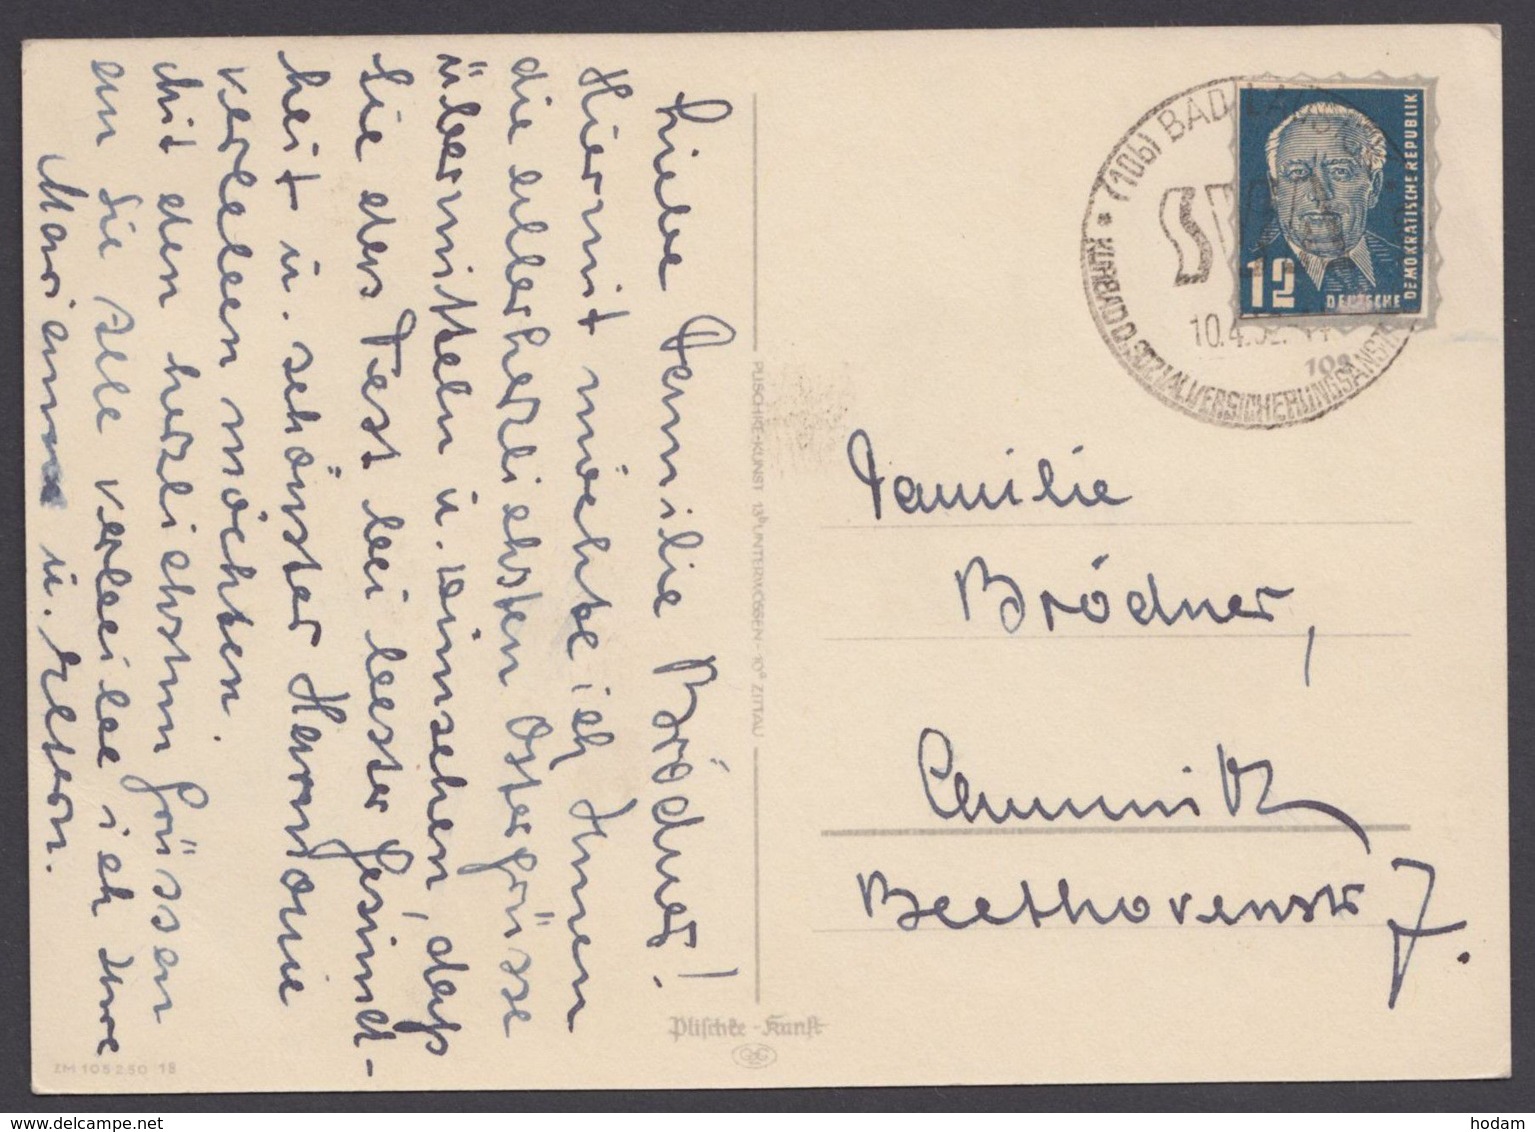 Liebe Familie Brödner!
Hiermit möchte ich Ihnen
die allerherzlichsten Ostergrüsse
übermitteln u. wünschen, daß
Sie das Fest bei bester Gesund-
heit u. schönster Harmonie
verleben möchten.
Mit den herzlichsten Grüssen
an Sie alle verbleibe ich Ihre
Marianne u. Eltern.
PLISCHKE-KUNST 13ᵇ UNTERWÖSSEN - 10ᵃ ZITTAU
Plischke-Kunst
ZM 105 2.50 18
(10b) BAD
KURBAD D. SOZIALVERSICHERUNGSANST
10.4.52.
12
DEUTSCHE
DEMOKRATISCHE REPUBLIK
108
Familie
Brödner,
Chemnitz
Beethovenstr 7.
hodam